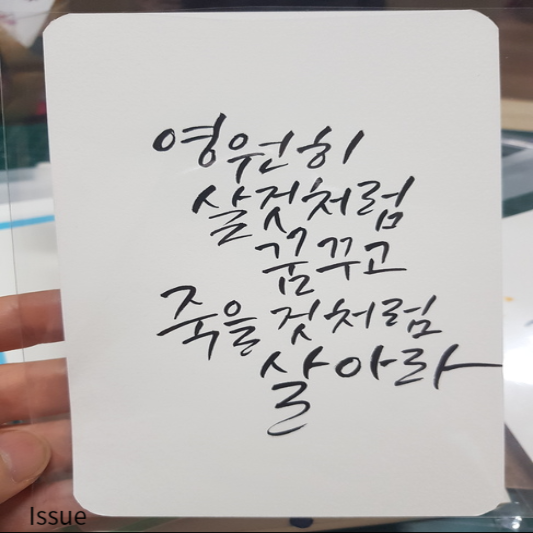 영원히
살것처럼
꿈꾸고
죽을것처럼
살아라
Issue